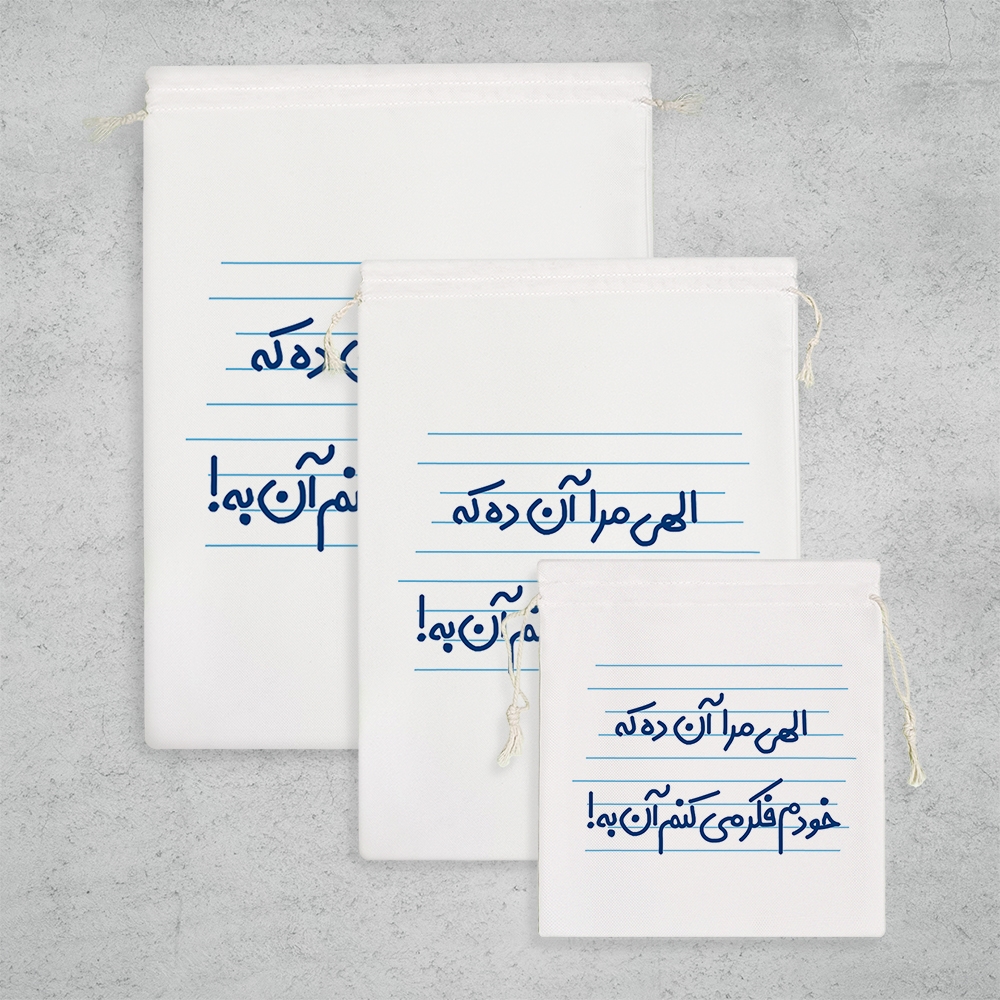 ده که
نم آن به!
الهی مرا آن ده که
آن به!
الهی مرا آن ده که
خودم فکر می کنم آن به!